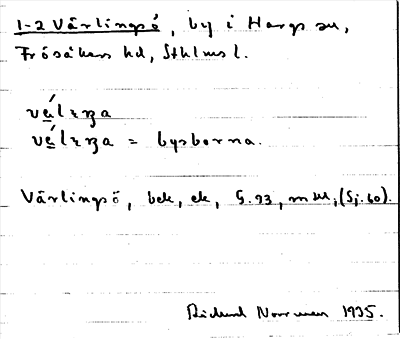 1-2 Värlingsö, by i Hargs sn,
Frösåkers hd, Sthlms l.
= bysborna.
Värlingsö, bek, ek, G. 93, (Sj. 60).
Rickard Norrman 1935.